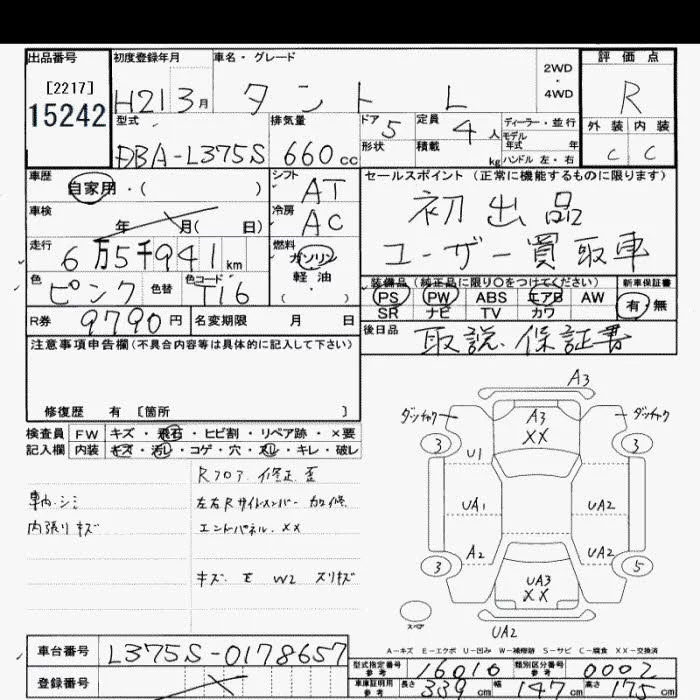 出品番号 初度登録年月 車名・グレード 2WD・4WD 評価点
[2217]
15242 H21 3月 タント L R
型式 排気量 ドア 5 定員 4人 ディーラー・並行 外装 内装
DBA-L375S 660cc 形状 積載 kg モデル年式 年 ハンドル 左・右 C C
車歴 シフト セールスポイント (正常に機能するものに限ります)
自家用・( ) AT 初出品
車検 年 月( 日) 冷房 AC ユーザー買取車
走行 6万5千941km 燃料 ガソリン 軽油 ( ・ )
色 ピンク 色替 色コード T16
装備品(純正品に限り○をつけてください) 新車保証書
PS PW ABS エアB AW 有・無
SR ナビ TV カワ
R券 9790円 名変期限 月 日 後日品 取説.保証書
注意事項申告欄(不具合内容等は具体的に記入して下さい)
修復歴 有 [箇所 ]
検査員 FW キズ・飛石・ヒビ割・リペア跡・×要
記入欄 内装 キズ・汚レ・コゲ・穴・スレ・キレ・破レ
Rフロア 修正 歪
車内.シミ 左右Rサイドメンバー カワ修
内張りキズ エンドパネル.XX
キズ. E W2 スリキズ
A3
ダッチャク A3 XX ダッチャク
3 3
U1
UA1 UA2
A2 UA2
3 UA3 XX 5
スペア UA2
A-キズ E-エクボ U-凹み W-補修跡 S-サビ C-腐食 XX-交換済
車台番号 L375S-0178657
登録番号
型式指定番号 参考 16010 類別区分番号 参考 0002
車庫証明用 参考 長さ 339cm 幅 147cm 高さ 175cm